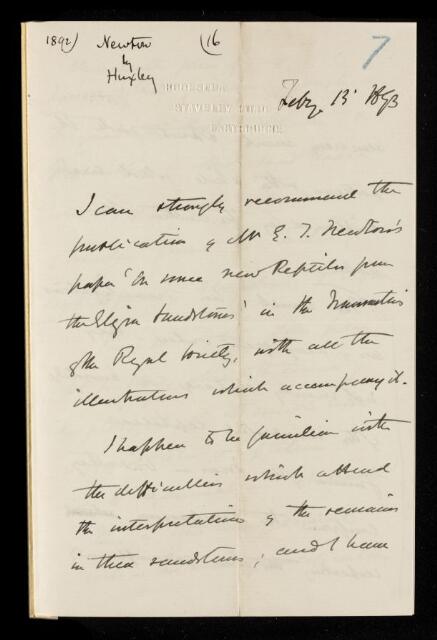 1892) Newton (16 7
by
Huxley
HODESLEA,
STAVELEY ROAD,
EASTBOURNE.
Feby. 13 1893
I can strongly recommend the
publication of Mr E. T. Newton's
paper 'On some new Reptiles from
the Elgin Sandstones' in the Transactions
of the Royal Society, with all the
illustrations which accompany it.
I happen to be familiar with
the difficulties which attend
the interpretation of the remains
in these sandstones; and I have